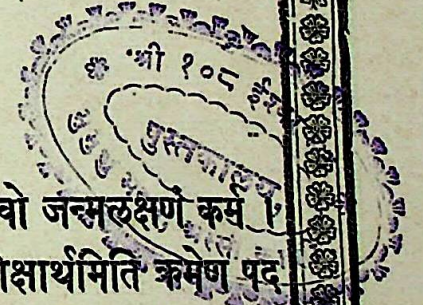 श्री १०८
पुस्तकालय
वो जन्मलक्षणं कर्म ।
क्षार्थमिति क्रमेण पद